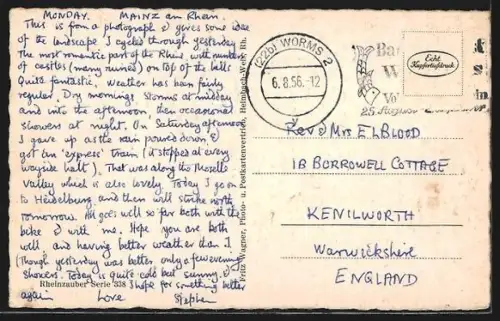 MONDAY. MAINZ am Rhein.
This is from a photograph & gives some idea
of the landscape I cycled through yesterday
The most romantic part of the Rhine with number
of castles (many ruined) on top of the hills
Quite fantastic. Weather has been fairly
regular. Dry morning, storms at midday
and into the afternoon, then occasional
showers at night. On Saturday afternoon
I gave up as the rain poured down &
got an 'express' train (it stopped at every
wayside halt). That was along the Moselle
Valley which is also lovely. Today I go on
to Heidelburg, and then will strike north
tomorrow. All goes well so far both with the
bike & with me. Hope you are both
well, and having better weather than I
(Though yesterday was better, only a few evening
showers. Today is quite cold but sunny.
Rheinzauber Serie 338 I hope for something better
again Love Stephen
Fritz Wagner, Photo- u. Postkartenvertrieb, Heimbach-Weis, Rh.
(22b) WORMS 2
6.8.56.-12
y
Ba
W
Vo
25. August
Echt
Kupfertiefdruck
Rev & Mrs E L BLOOD
1B BORROWELL COTTAGE
KENILWORTH
Warwickshire
ENGLAND